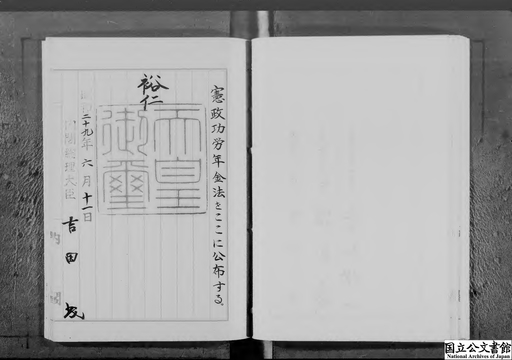 憲政功労年金法をここに公布する。
裕仁
天皇御璽
昭和二十九年六月十一日
内閣総理大臣 吉田茂
内閣
国立公文書館
National Archives of Japan